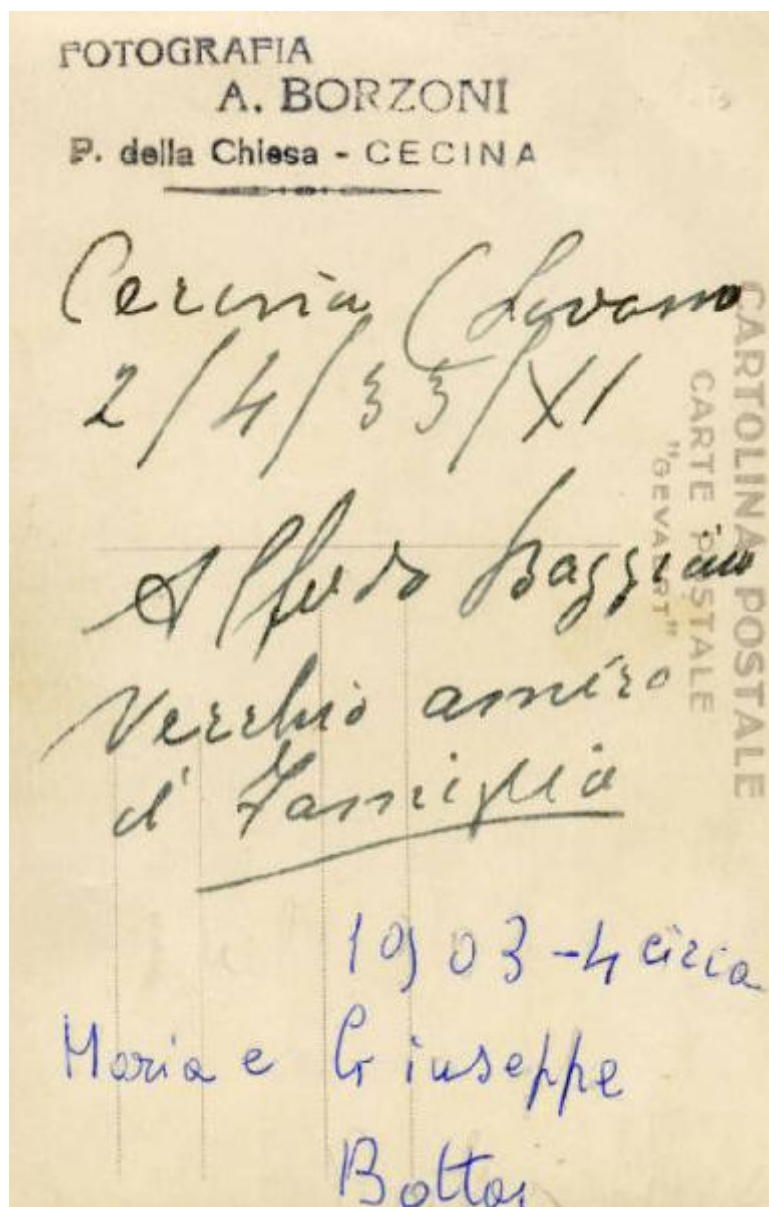 FOTOGRAFIA
A. BORZONI
P. della Chiesa - CECINA
Cecina (
2/4/33/XI
Alfredo
Vecchio amico
d' Famiglia
1903-4 circa
Maria e Giuseppe
CARTOLINA POSTALE
CARTE POSTALE
"GEVAERT"